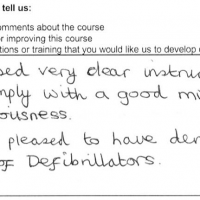 tell us:
omments about the course
r improving this course
tions or training that you would like us to develop
sed very clear instruc
mply with a good mi
ousness.
pleased to have der
of Defibrillators.